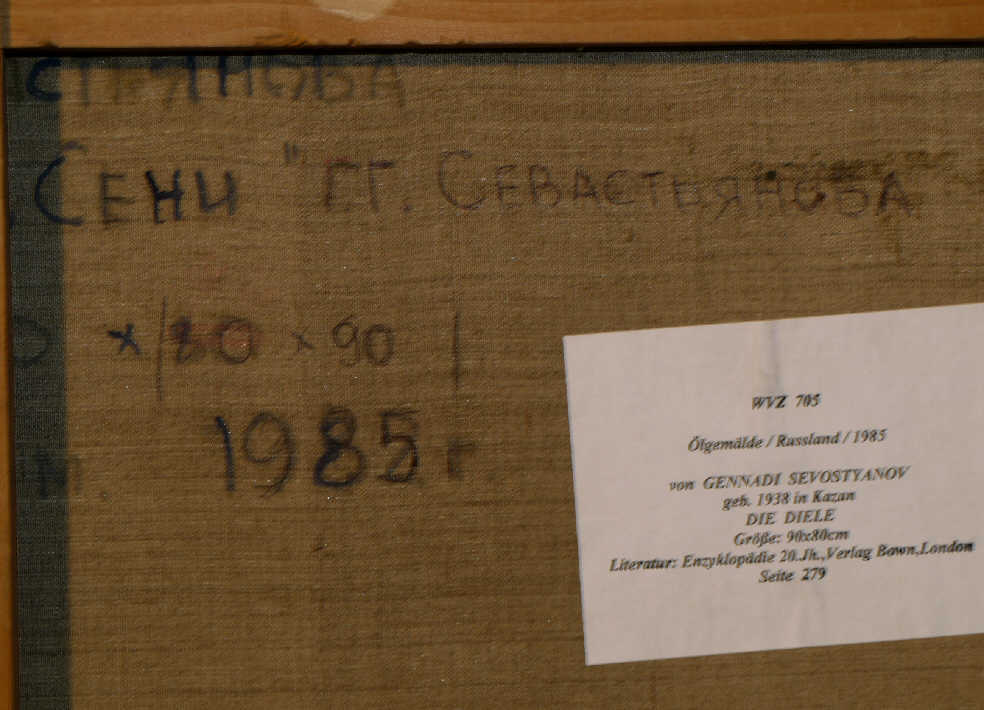 СТЬЯНОВА
Сени " СГ. СЕВАСТЬЯНОВА
х |80 х 90 |
1985 г.
WVZ 705
Ölgemälde / Russland / 1985
von GENNADI SEVOSTYANOV
geb. 1938 in Kazan
DIE DIELE
Größe: 90x80cm
Literatur: Enzyklopädie 20.Jh.,Verlag Bown,London
Seite 279